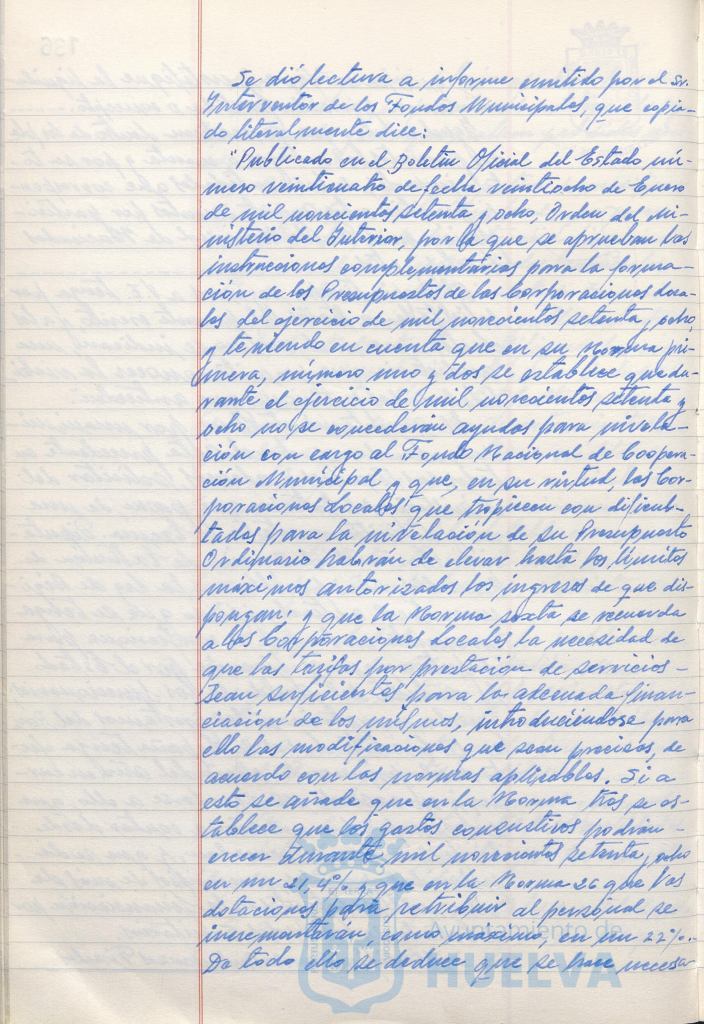 Se dió lectura a informe emitido por el Sr.
Interventor de los Fondos Municipales, que copia-
do literalmente dice:
"Publicado en el Boletín Oficial del Estado nú-
mero veinticuatro de fecha veintiocho de Enero
de mil novecientos setenta y ocho, Orden del Mi-
nisterio del Interior, por la que se aprueban las
instrucciones complementarias para la forma-
ción de los Presupuestos de las Corporaciones Loca-
les del ejercicio de mil novecientos setenta y ocho,
y teniendo en cuenta que en su Norma pri-
mera, número uno y dos se establece que du-
rante el ejercicio de mil novecientos setenta y
ocho no se concederán ayudas para nivela-
ción con cargo al Fondo Nacional de Coopera-
ción Municipal y que, en su virtud, las Cor-
poraciones Locales que tropiecen con dificul-
tades para la nivelación de su Presupuesto
Ordinario habrán de elevar hasta los límites
máximos autorizados los ingresos de que dis-
pongan; y que la Norma sexta se recuerda
a las Corporaciones Locales la necesidad de
que las tarifas por prestación de servicios -
sean suficientes para la adecuada finan-
ciación de los mismos, introduciéndose para
ello las modificaciones que sean precisas, de
acuerdo con las normas aplicables. Si a
esto se añade que en la Norma tres se es-
tablece que los gastos consuntivos podrán -
crecer durante mil novecientos setenta y ocho
en un 21,4% y que en la Norma 26 que las
dotaciones para retribuir al personal se
incrementarán, como máximo, en un 22%.
De todo ello se deduce que se hace necesa-
Ayuntamiento de
HUELVA